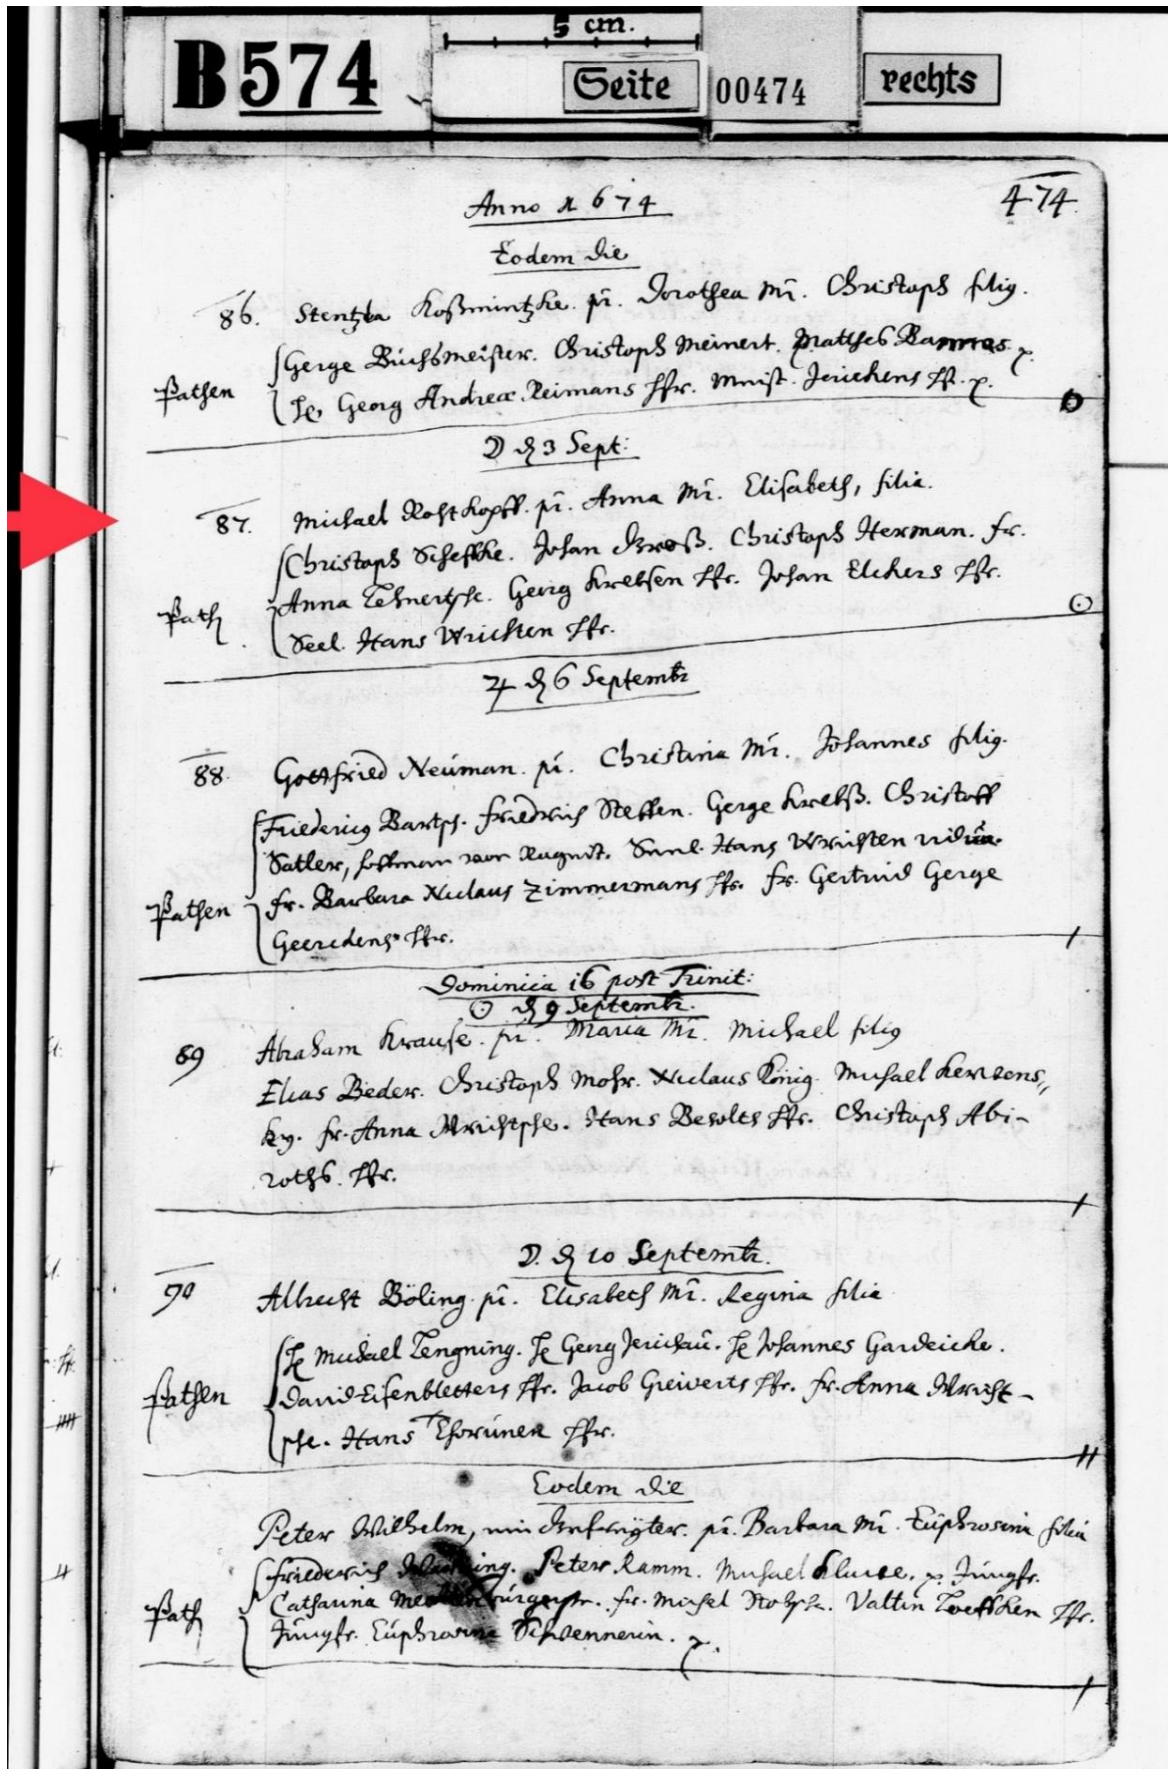 5 cm.
B 574
Seite 00474 rechts
474.
Anno 1674
Eodem die
86. Stentzla Koßmintzke. pr. Dorothea Mr. Christoph filig.
Gerge Büchsmeister. Christoph Meinert. Matthes Bannas
Pathen
Georg Andreæ Reimans Hfr. Jerichens Hfr.
D d 3 Sept:
87. Michael Rohtkopff. pr. Anna Mr. Elisabeth, filia.
Christoph Scheffke. Johan Groß. Christoph Herman. fr.
Path
Anna Lehnertsche. Georg Krebsen Hfr. Johan Elckers Hfr.
Seel. Hans Wrichten Hfr.
♃ d 6 Septembr
88. Gottfried Neüman. pr. Christina Mr. Johannes filig.
Friedericg Bartsch. Friedrich Steffen. Gerge Krebß. Christoff
Satler, Hans Wrichten
Pathen
fr. Barbara Niclaus Zimmermans Hfr. fr. Gertrud Gerge
Hfr.
Dominica 16 post Trinit:
☉ d 9 Septembr.
89 Abraham Krause. pr. Maria Mr. Michael filig
Elias Bieder. Christoph Mohr. Niclaus König. Michael
ky. fr. Anna Wrichtsche. Hans Besolts Hfr. Christoph Abi-
roths. Hfr.
D. d 10 Septembr.
90 Albrecht Böling pr. Elisabeth Mr. Regina filia
Michael Lengning. Georg Jerichau. Johannes Gardeicke.
Pathen
David Eisenbletters Hfr. Jacob Greiverts Hfr. fr. Anna Wricht-
sche. Hans Hfr.
Eodem die
Peter Wilhelm, ein pr. Barbara Mr. Euphrosina filia
Friederich Peter Ramm. Michael Jungfr.
Path
Catharina fr. Michel Valtin Hfr.
Jungfr. Euphrosina Schwennerin.